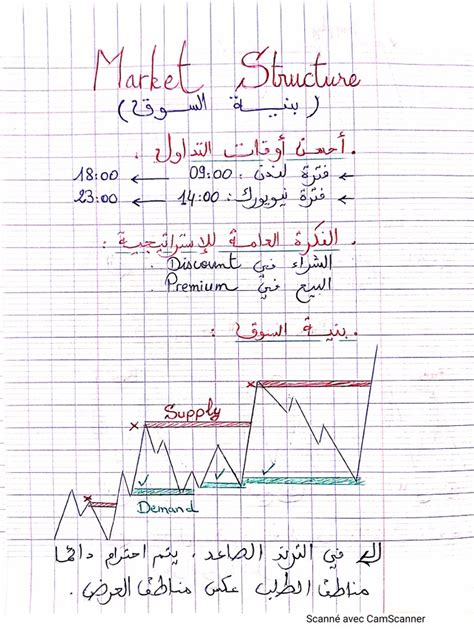 Market Structure
(بنية السوق)
. أحسن أوقات التداول .
← فترة لندن : 09:00 ← 18:00
← فترة نيويورك : 14:00 ← 23:00
. الفكرة العامة للإستراتيجية :
الشراء في Discount .
البيع في Premium .
. بنية السوق :
Supply
Demand
في الترند الصاعد ، يتم احترام دائما
مناطق الطلب عكس مناطق العرض .
Scanné avec CamScanner